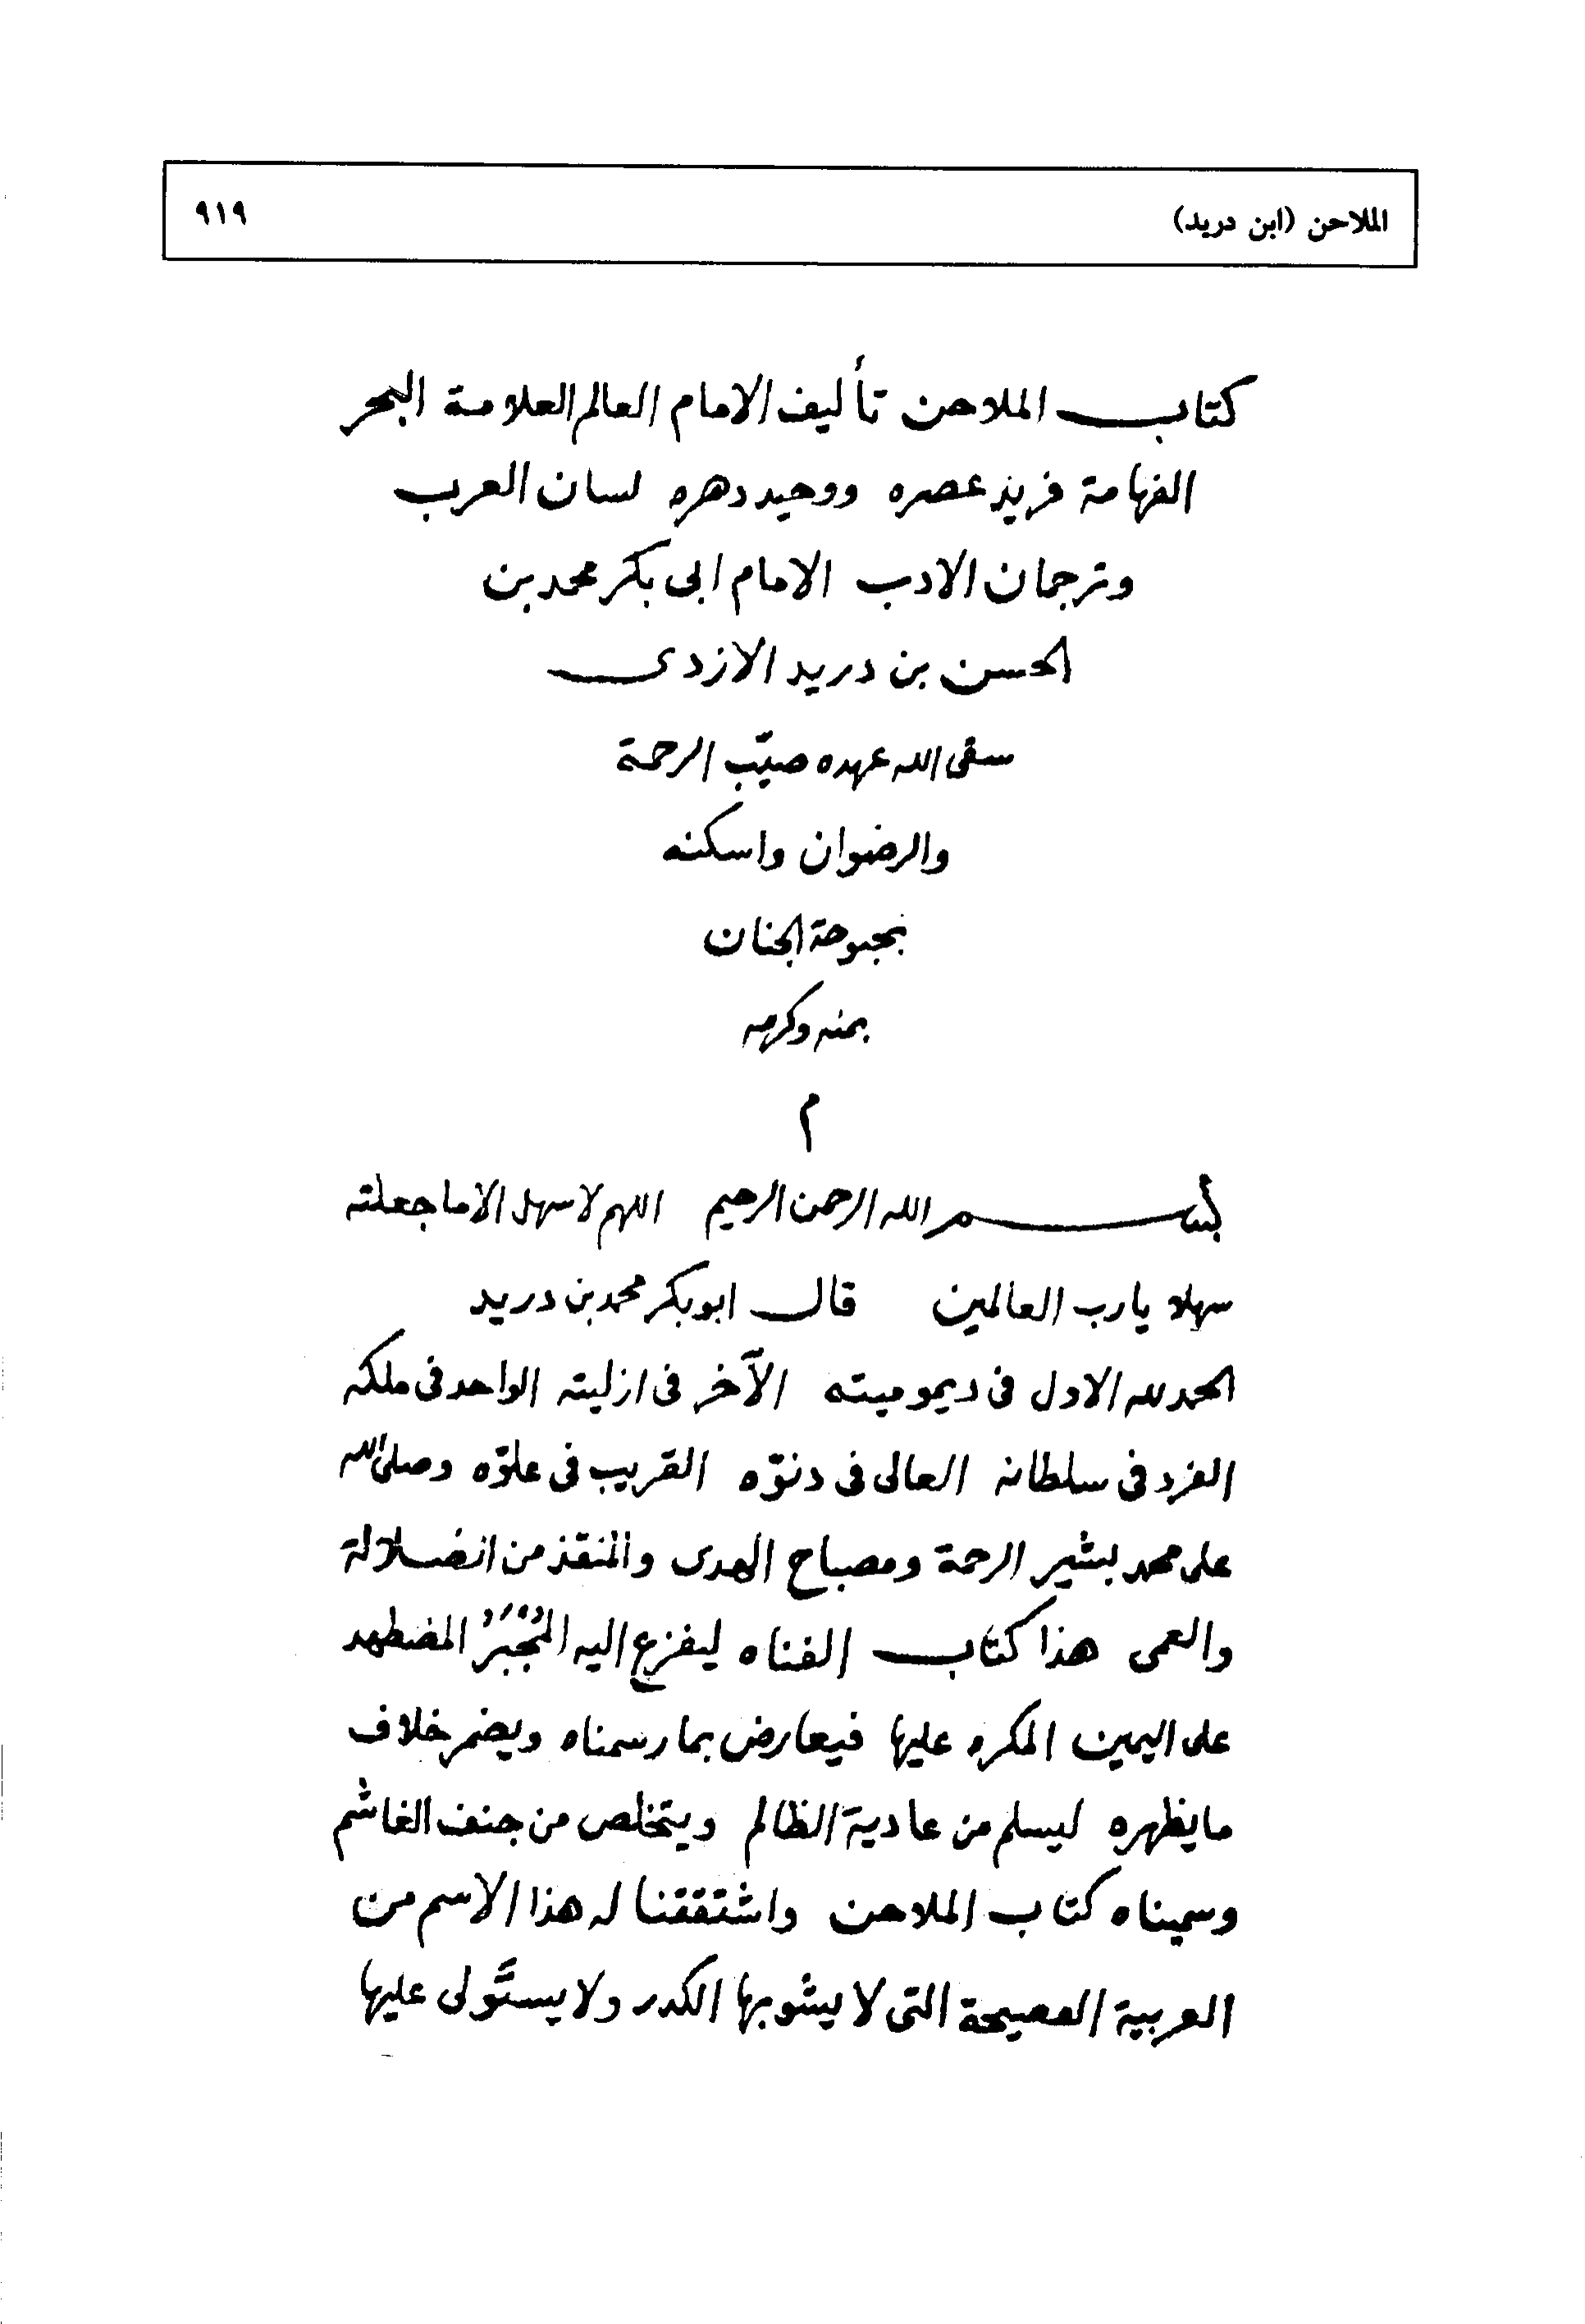 الملاحن (ابن دريد)
٩١٩
كتاب الملاحن تأليف الامام العالم العلامة البحر
الفهامة فريد عصره ووحيد دهره لسان العرب
وترجمان الادب الامام ابى بكر محمد بن
الحسن بن دريد الازدى
سقى الله عهده صيّب الرحمة
والرضوان واسكنه
بحبوحة الجنان
بمنه وكرمه
م
بسم الله الرحمن الرحيم اللهم لا سهل الا ما جعلته
سهلا يا رب العالمين قال ابو بكر محمد بن دريد
الحمد لله الاول فى ديموميته الآخر فى ازليته الواحد فى ملكه
الفرد فى سلطانه العالى فى دنوّه القريب فى علوّه وصلى الله
على محمد بشير الرحمة ومصباح الهدى والمنقذ من الضلالة
والعمى هذا كتاب الفناه ليفزع اليه المُجْبَرُ المضطهد
على اليمين المكره عليها فيعارض بما رسمناه ويضمر خلاف
ما يظهره ليسلم من عادية الظالم ويتخلص من جنف الغاشم
وسميناه كتاب الملاحن واشتققنا له هذا الاسم من
العربية الفصيحة التى لا يشوبها الكدر ولا يستَولى عليها